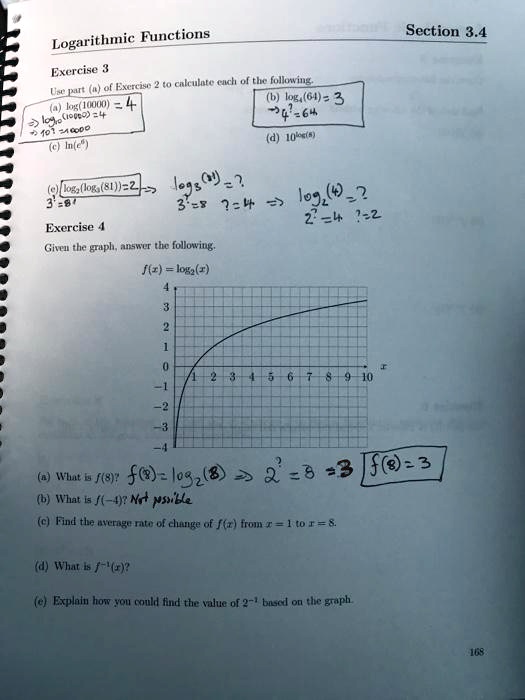 Logarithmic Functions
Section 3.4
Exercise 3
Use part (a) of Exercise 2 to calculate each of the following.
(a) log(10000) = 4
⇒ log₁₀(10000) = 4
⇒ 10^? = 10000
(b) log₄(64) = 3
→ 4^? = 64
(c) ln(e⁶)
(d) 10^log(8)
(e) log₂(log₃(81)) = 2 ⇒ log₃(81) = ?
3^? = 81
3^? = 8 ? = 4 ⇒ log₂(4) = ?
2^? = 4 ? = 2
Exercise 4
Given the graph, answer the following.
f(x) = log₂(x)
4
3
2
1
0
−1
−2
−3
−4
1 2 3 4 5 6 7 8 9 10
x
(a) What is f(8)? f(8) = log₂(8) ⇒ 2^? = 8 = 3 f(8) = 3
(b) What is f(−4)? Not possible
(c) Find the average rate of change of f(x) from x = 1 to x = 8.
(d) What is f⁻¹(x)?
(e) Explain how you could find the value of 2⁻¹ based on the graph.
168